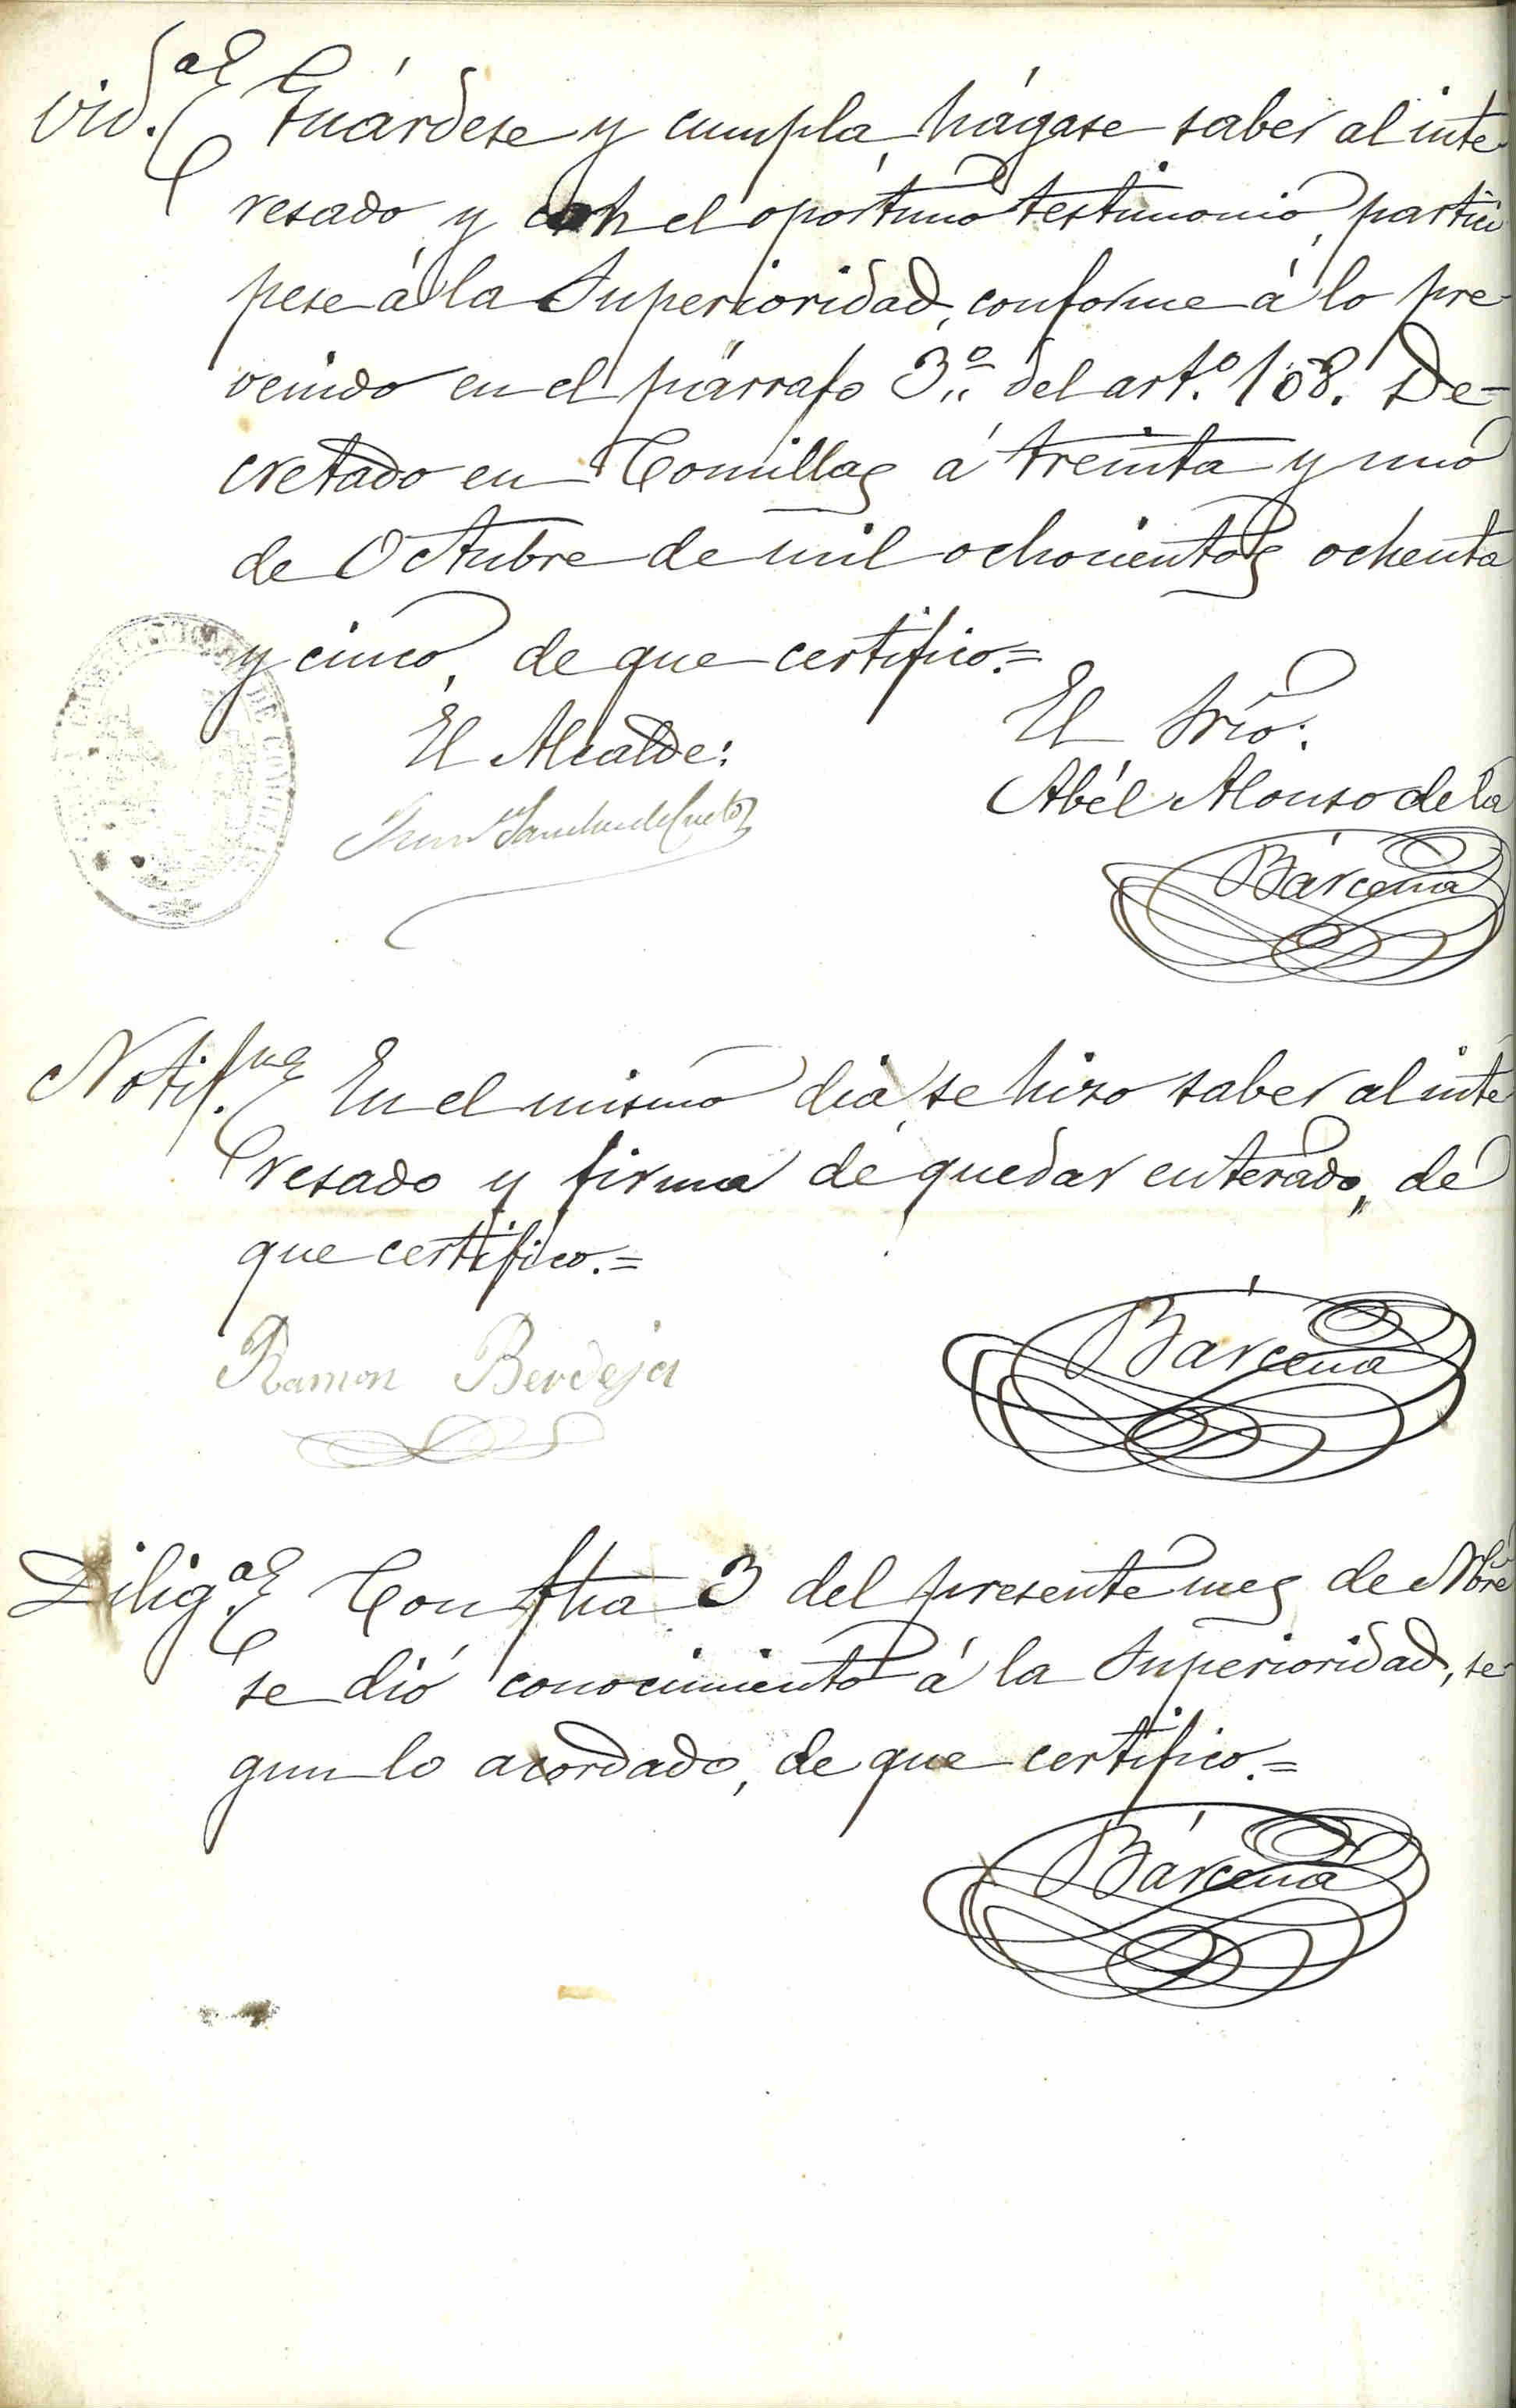 vid.ª Guárdese y cumpla, hágase saber al inte
resado y con el oportuno testimonio, partici
pese á la Superioridad, conforme á lo pre-
venido en el párrafo 3.º del art.º 168. De-
cretado en Comillas á treinta y uno
de Octubre de mil ochocientos ochenta
y cinco, de que certifico.=
El Alcalde:
El Srio:
Abél Alonso de la
Bárcena
Notif.ne En el mismo dia, se hizo saber al inte
resado y firma de quedar enterado, de
que certifico.=
Ramon Berdeja
Bárcena
Dilig.ª Con fha 3 del presente mes de Nbre
se dió conocimiento á la Superioridad, se-
gun lo acordado, de que certifico.=
Bárcena